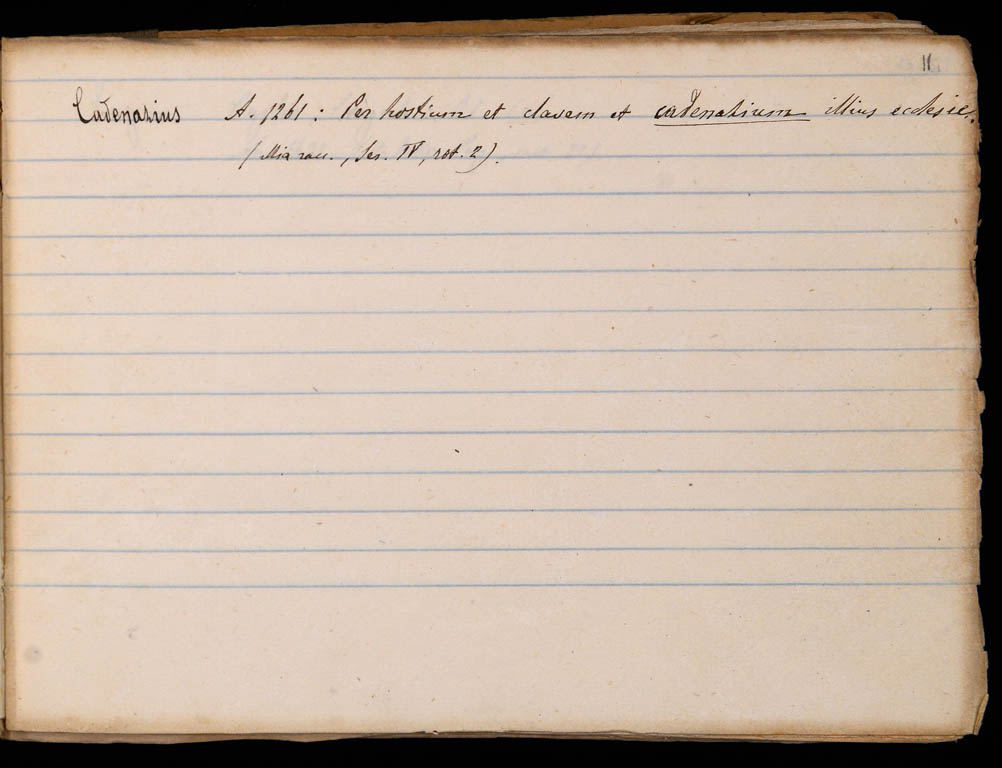 11
Cadenarius A. 1261: Per hostium et clavem et cadenatium illius ecclesie.
(Mia racc., Ser. IV, rot. 2).